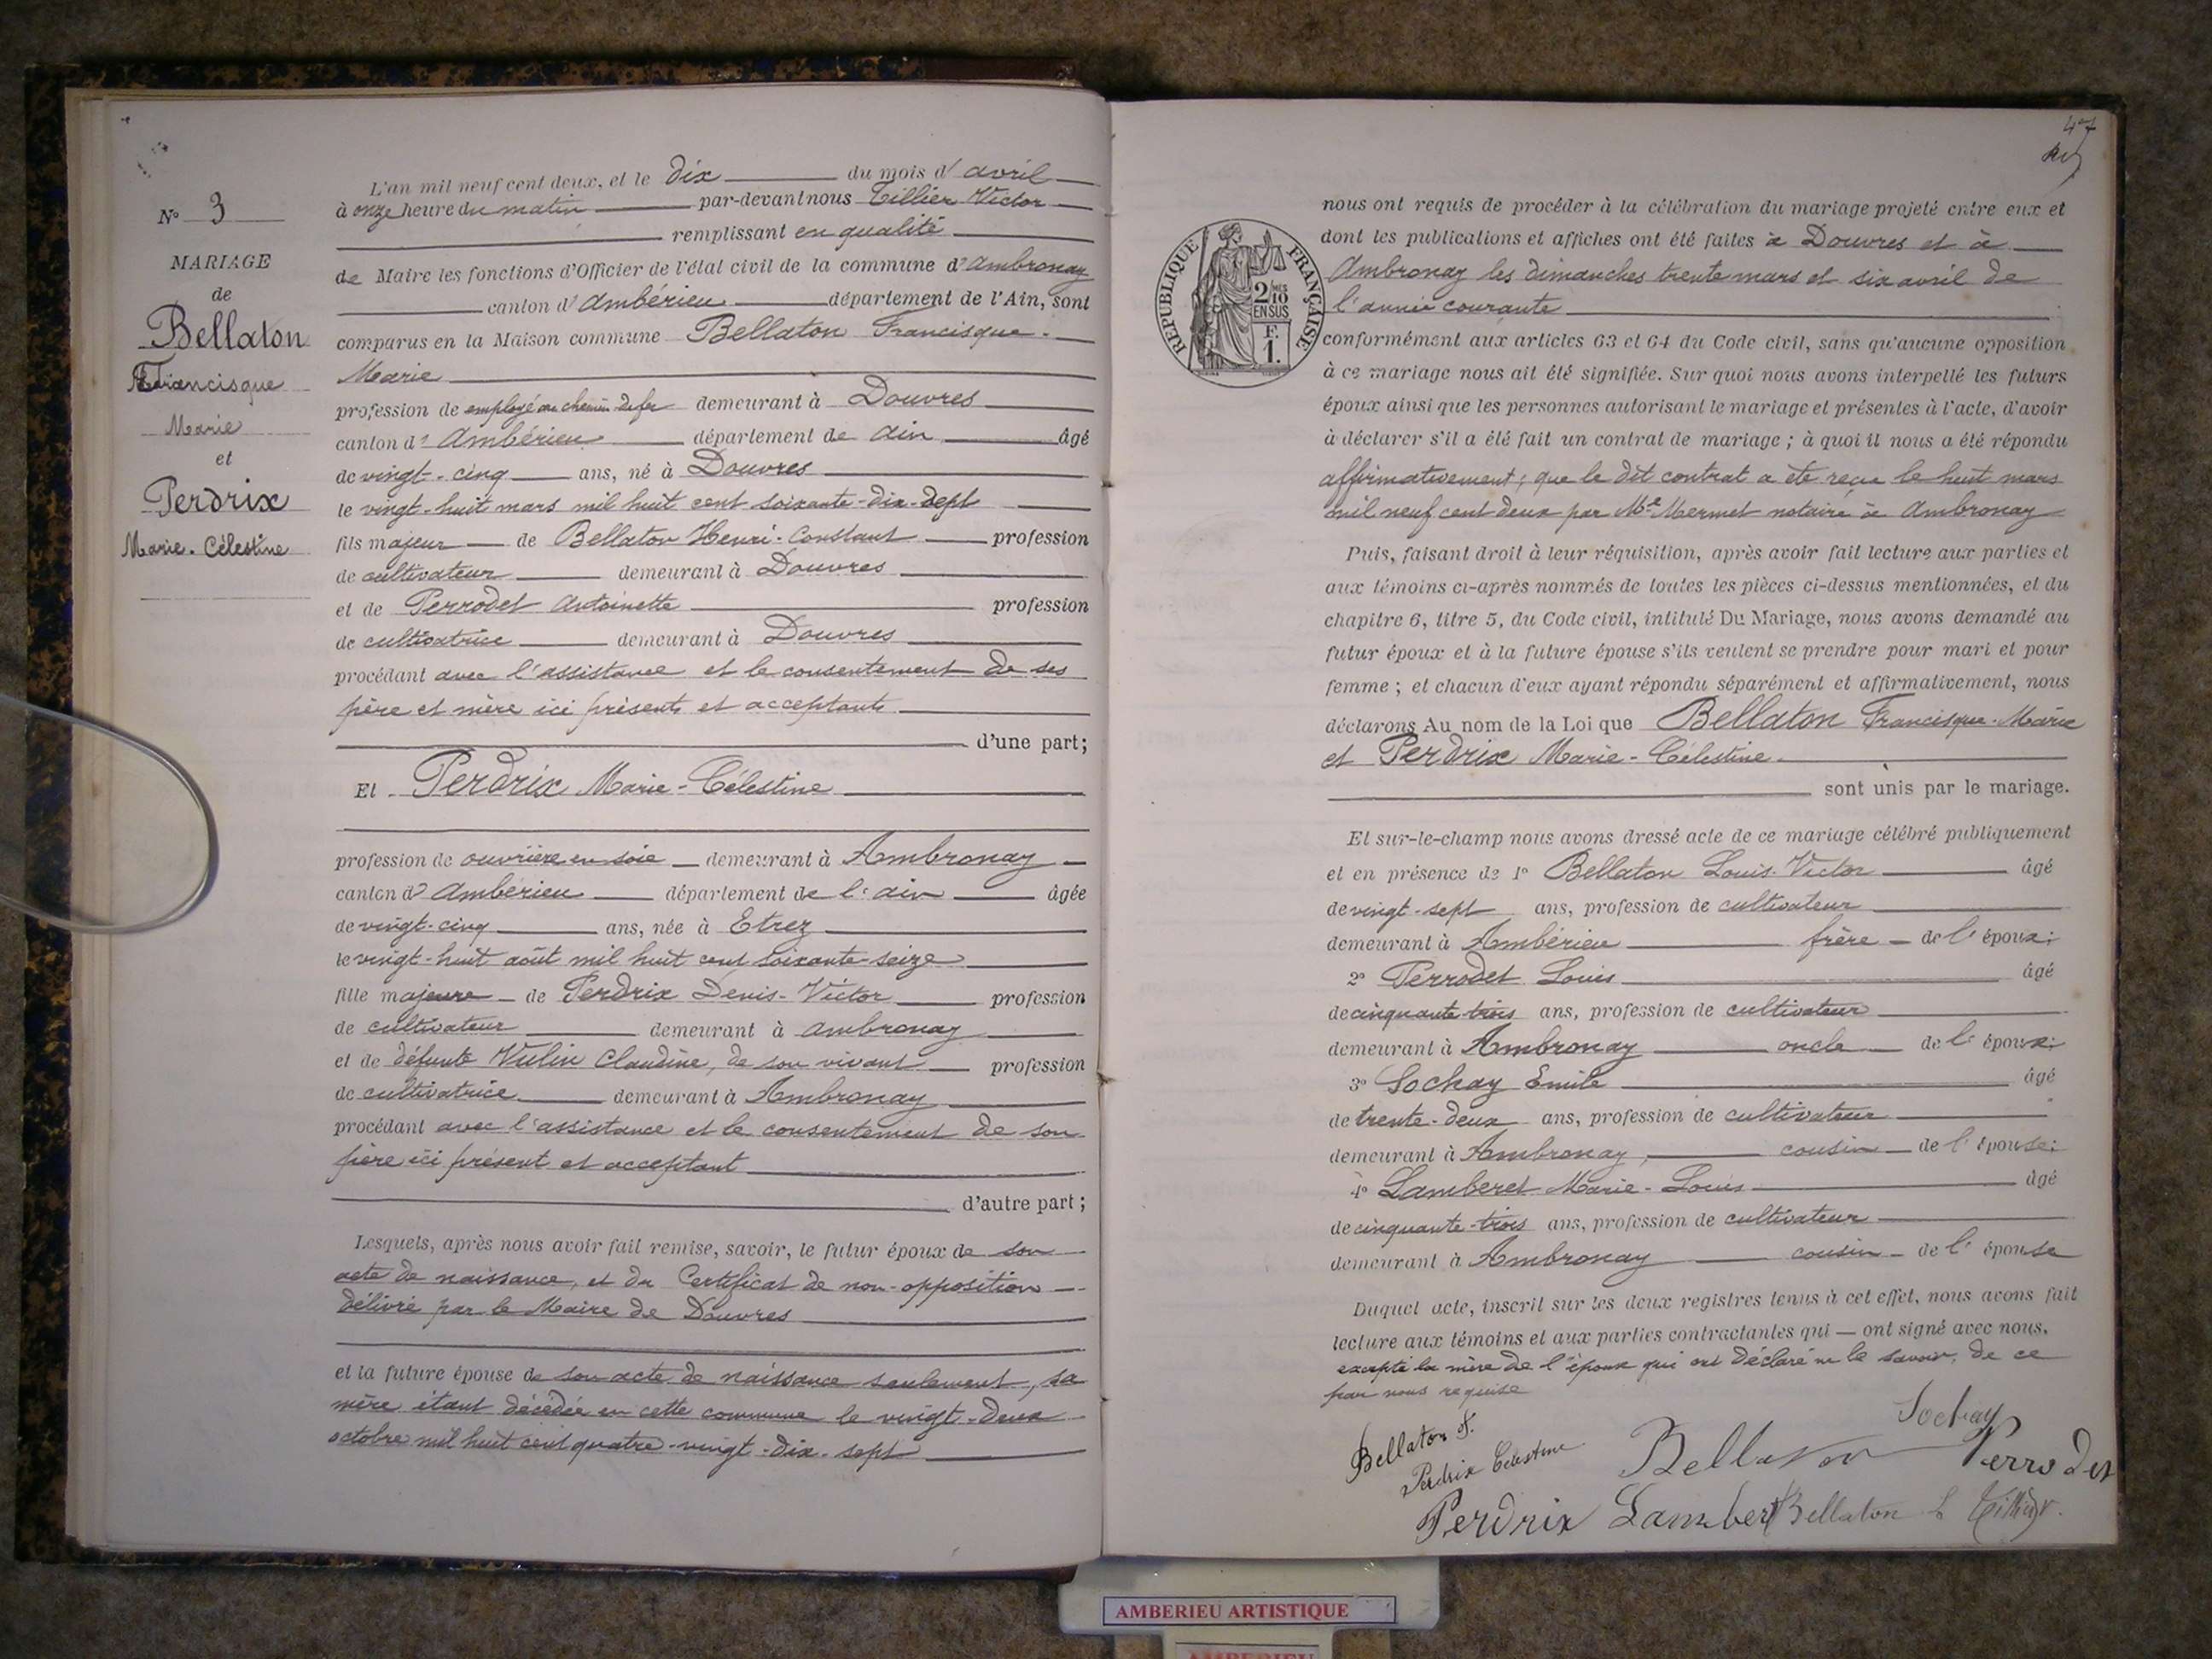 N° 3
MARIAGE
de
Bellaton
Francisque
Marie
et
Perdrix
Marie-Célestine
L'an mil neuf cent deux, et le dix du mois d'avril
à onze heure du matin par-devant nous Tillier Victor
remplissant en qualité
de Maire les fonctions d'Officier de l'état civil de la commune d'Ambronay
canton d'Ambérieu département de l'Ain, sont
comparus en la Maison commune Bellaton Francisque-
Marie
profession de employé au chemin de fer demeurant à Douvres
canton d'Ambérieu département de ain âgé
de vingt-cinq ans, né à Douvres
le vingt-huit mars mil huit cent soixante-dix-sept
fils majeur de Bellaton Henri-Constant profession
de cultivateur demeurant à Douvres
et de Perrodet Antoinette profession
de cultivatrice demeurant à Douvres
procédant avec l'assistance et le consentement de ses
père et mère ici présents et acceptants
d'une part;
Et Perdrix Marie-Célestine
profession de ouvrière en soie demeurant à Ambronay
canton d'Ambérieu département de l'ain âgée
de vingt-cinq ans, née à Etrez
le vingt-huit août mil huit cent soixante-seize
fille majeure de Perdrix Denis-Victor profession
de cultivateur demeurant à Ambronay
et de défunte Vulin Claudine, de son vivant profession
de cultivatrice demeurant à Ambronay
procédant avec l'assistance et le consentement de son
père ici présent et acceptant
d'autre part;
Lesquels, après nous avoir fait remise, savoir, le futur époux de son
acte de naissance, et du Certificat de non-opposition
délivré par le Maire de Douvres
et la future épouse de son acte de naissance seulement, sa
mère étant décédée en cette commune le vingt-deux
octobre mil huit cent quatre-vingt-dix-sept
47
RÉPUBLIQUE FRANÇAISE
2/10 MES
EN SUS
F.
1.
nous ont requis de procéder à la célébration du mariage projeté entre eux et
dont les publications et affiches ont été faites à Douvres et à
Ambronay les dimanches trente mars et six avril de
l'année courante
conformément aux articles 63 et 64 du Code civil, sans qu'aucune opposition
à ce mariage nous ait été signifiée. Sur quoi nous avons interpellé les futurs
époux ainsi que les personnes autorisant le mariage et présentes à l'acte, d'avoir
à déclarer s'il a été fait un contrat de mariage; à quoi il nous a été répondu
affirmativement; que le dit contrat a été reçu le huit mars
mil neuf cent deux par Me Mermet notaire à Ambronay
Puis, faisant droit à leur réquisition, après avoir fait lecture aux parties et
aux témoins ci-après nommés de toutes les pièces ci-dessus mentionnées, et du
chapitre 6, titre 5, du Code civil, intitulé Du Mariage, nous avons demandé au
futur époux et à la future épouse s'ils veulent se prendre pour mari et pour
femme; et chacun d'eux ayant répondu séparément et affirmativement, nous
déclarons Au nom de la Loi que Bellaton Francisque-Marie
et Perdrix Marie-Célestine
sont unis par le mariage.
Et sur-le-champ nous avons dressé acte de ce mariage célébré publiquement
et en présence de 1° Bellaton Louis-Victor âgé
de vingt-sept ans, profession de cultivateur
demeurant à Ambérieu frère de l'époux;
2° Perrodet Louis âgé
de cinquante-trois ans, profession de cultivateur
demeurant à Ambronay oncle de l'époux;
3° Sochay Emile âgé
de trente-deux ans, profession de cultivateur
demeurant à Ambronay, cousin de l'épouse;
4° Lamberet Marie-Louis âgé
de cinquante-trois ans, profession de cultivateur
demeurant à Ambronay cousin de l'épouse
Duquel acte, inscrit sur les deux registres tenus à cet effet, nous avons fait
lecture aux témoins et aux parties contractantes qui — ont signé avec nous.
excepté la mère de l'époux qui ont déclaré ne le savoir, de ce
par nous requise
Sochay
Bellaton F.
Perdrix Célestine
Bellaton
Perrodet
Perdrix
Lamberet
Bellaton L
Tillier V.
AMBERIEU ARTISTIQUE
AMBERIEU